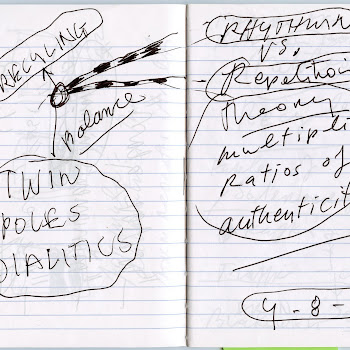 RECYLING
Balance
TWIN
POLES
DIALITICS
RHYTHM
VS.
Repetition
Theory
multipli
Ratios of
authenticit
4-8-